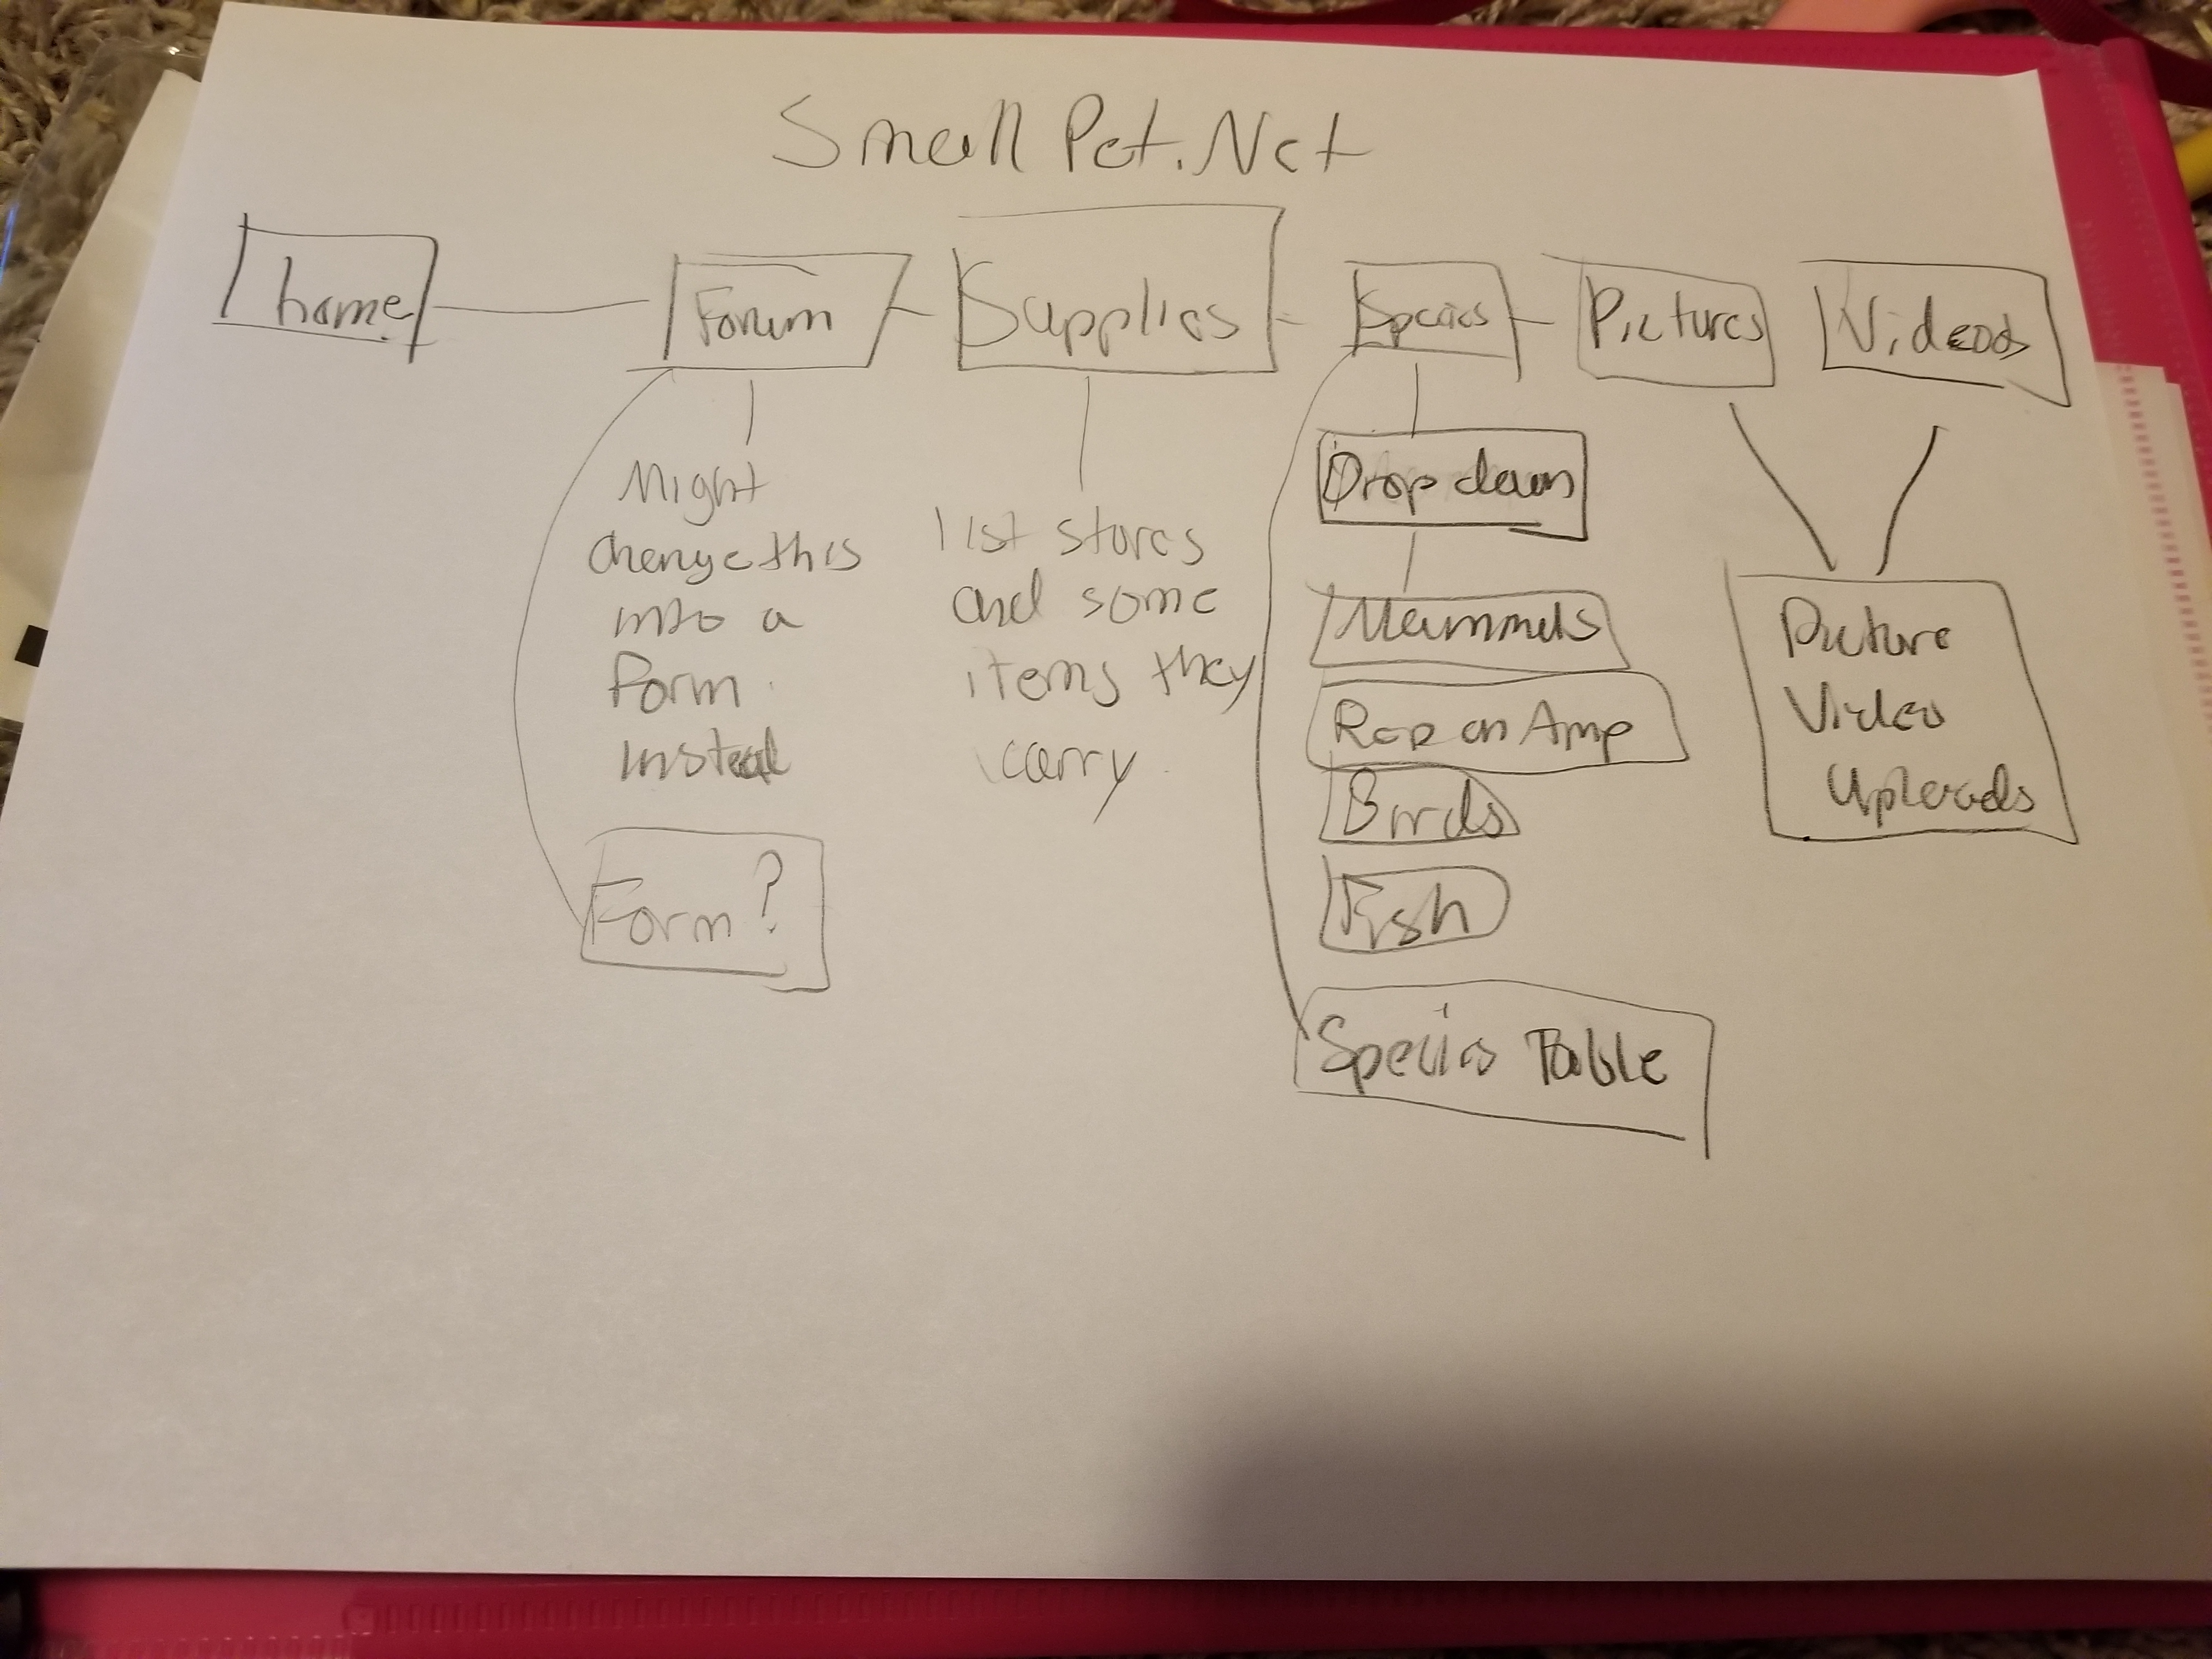 Small Pet.Net
home
Forum
Supplies
Species
Pictures
Videos
Might
change this
into a
form
instead
Form?
list stores
and some
items they
carry
Drop down
Mammals
Rep an Amp
Birds
Fish
Species Table
Picture
Video
Uploads